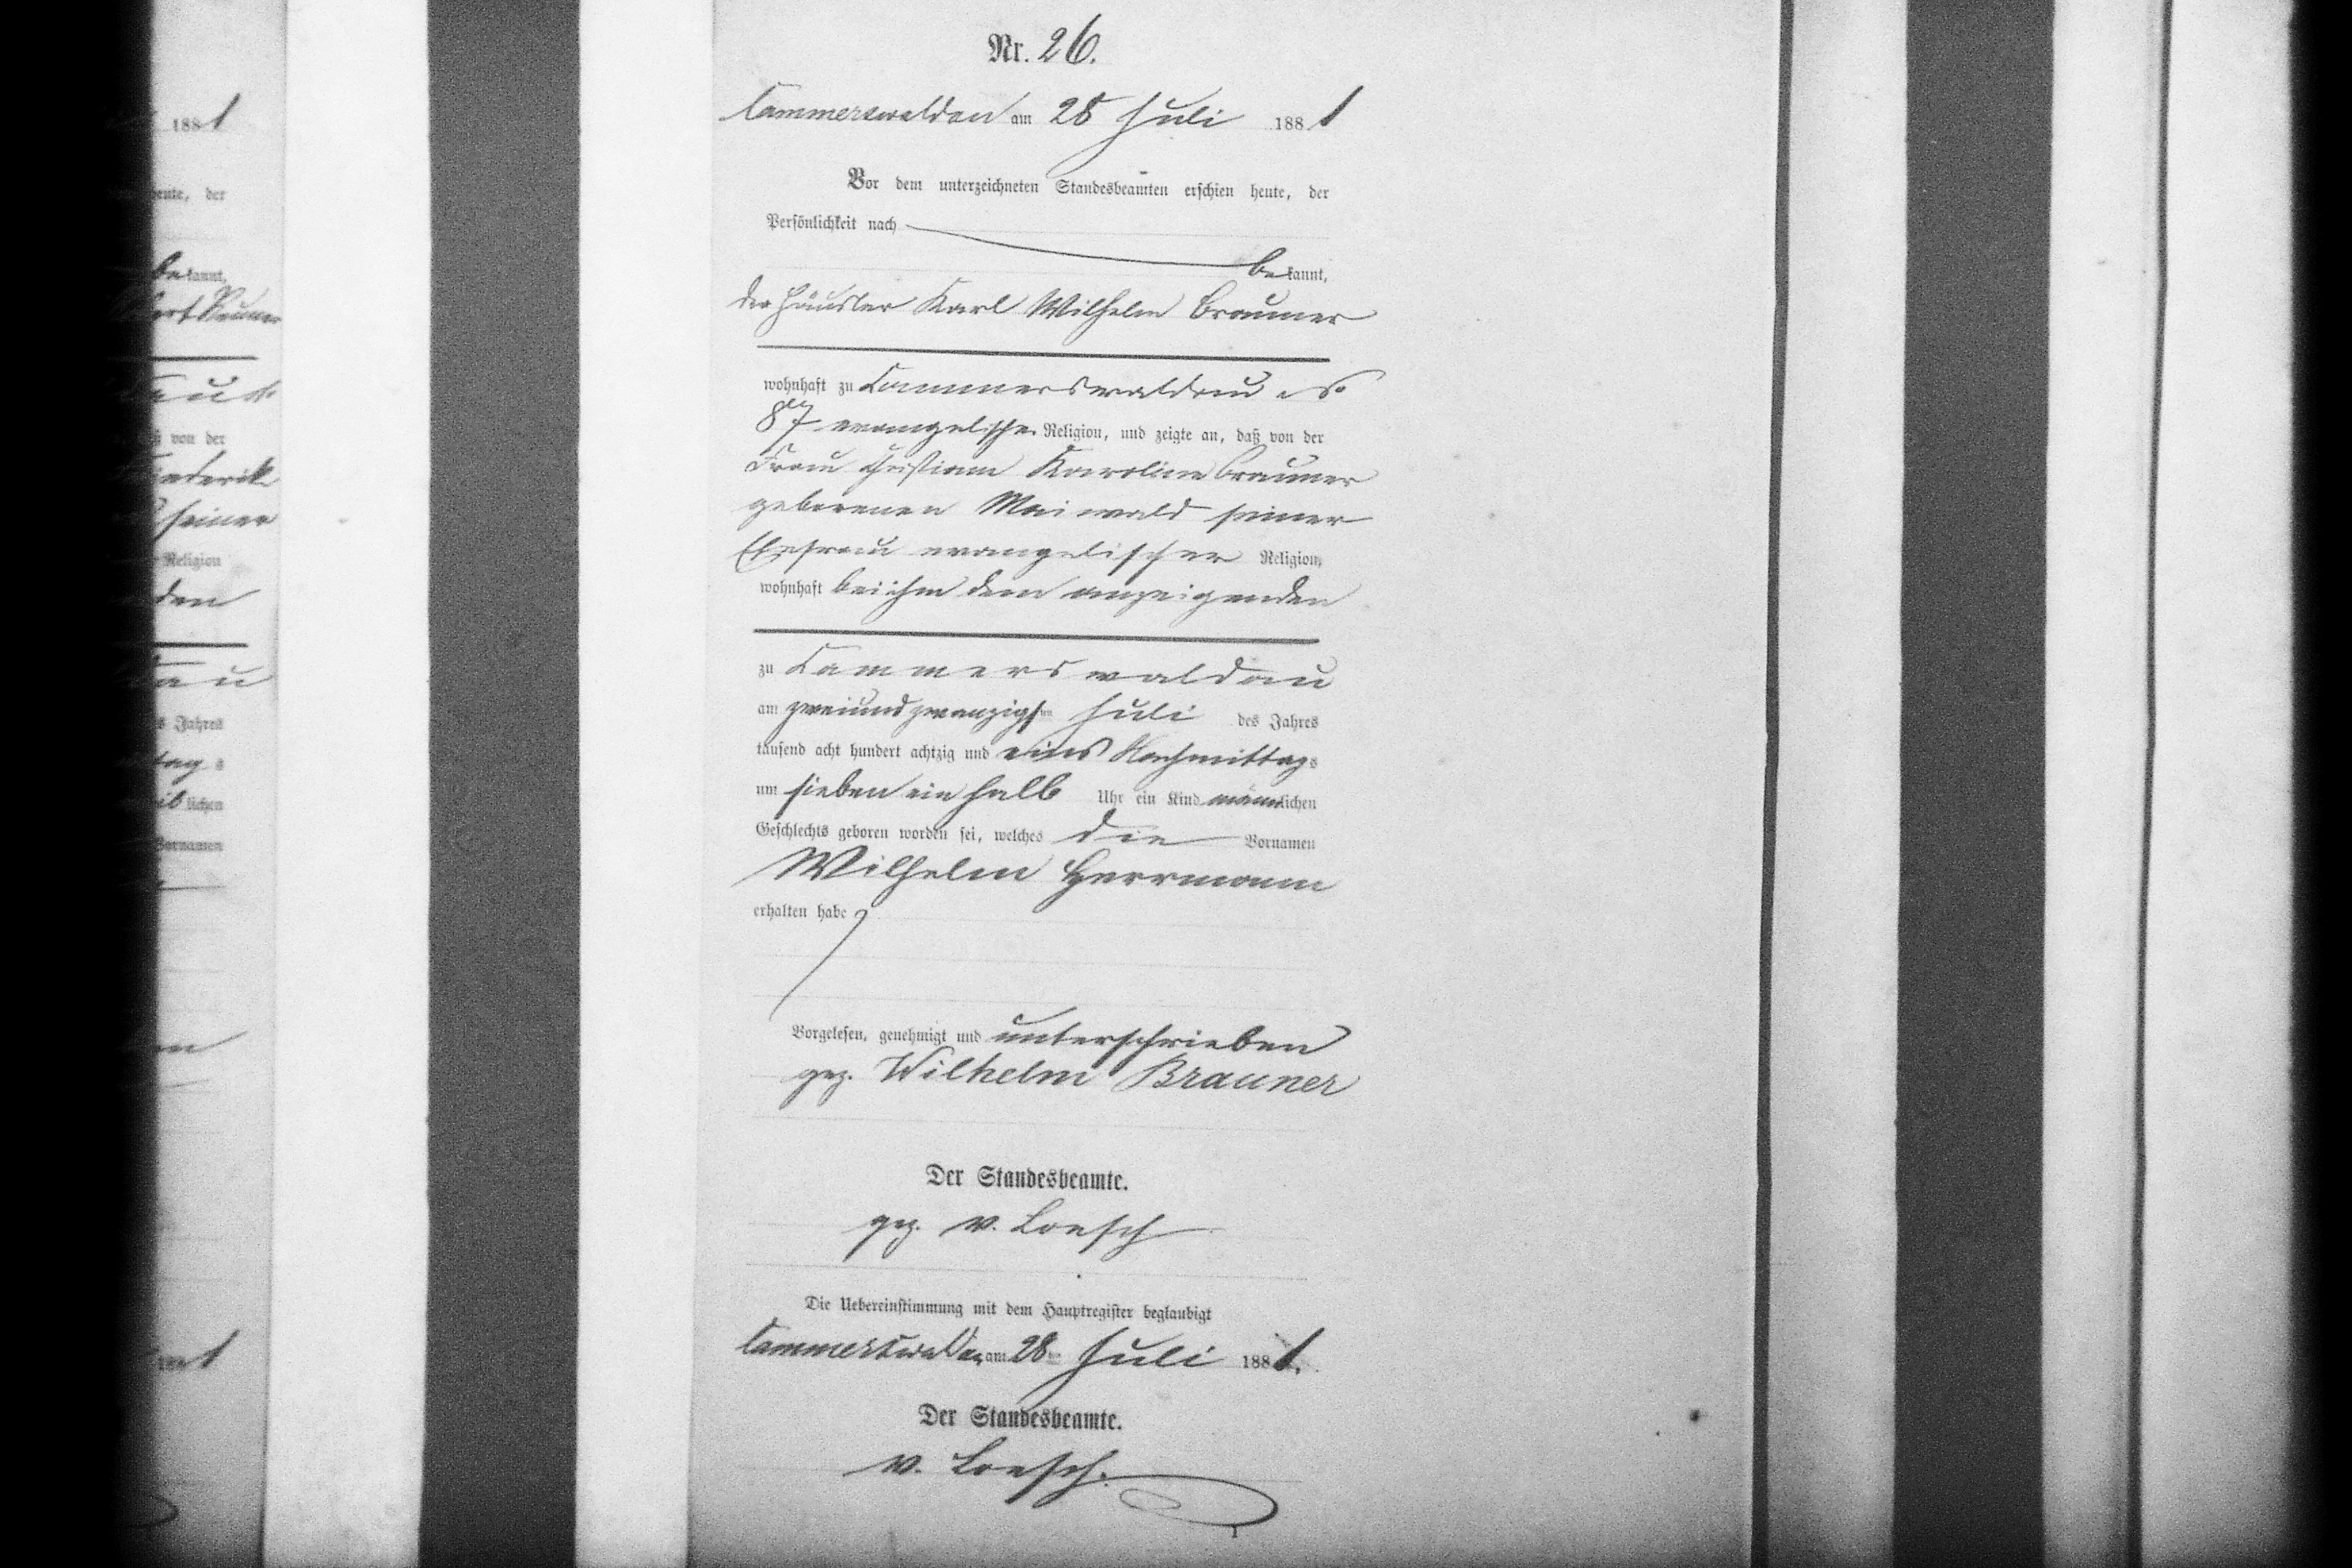 Nr. 26.
Cammerswaldau am 28 Juli 1881
Vor dem unterzeichneten Standesbeamten erschien heute, der
Persönlichkeit nach
bekannt,
der Häusler Karl Wilhelm Brauner
wohnhaft zu Cammerswaldau
87 evangelischer Religion, und zeigte an, daß von der
Frau Christiane Karoline Brauner
geborenen Maiwald seiner
Ehefrau evangelischer Religion,
wohnhaft bei ihm dem anzeigenden
zu Cammerswaldau
am zweiundzwanzigsten Juli des Jahres
tausend acht hundert achtzig und eins Nachmittags
um sieben ein halb Uhr ein Kind männlichen
Geschlechts geboren worden sei, welches die Vornamen
Wilhelm Herrmann
erhalten habe
Vorgelesen, genehmigt und unterschrieben
gez. Wilhelm Brauner
Der Standesbeamte.
gez. v. Loesch
Die Uebereinstimmung mit dem Hauptregister beglaubigt
Cammerswaldau am 28ten Juli 1881.
Der Standesbeamte.
v. Loesch.
1881
heute, der
bekannt,
von der
seiner
Religion
s Jahres
lichen
Vornamen